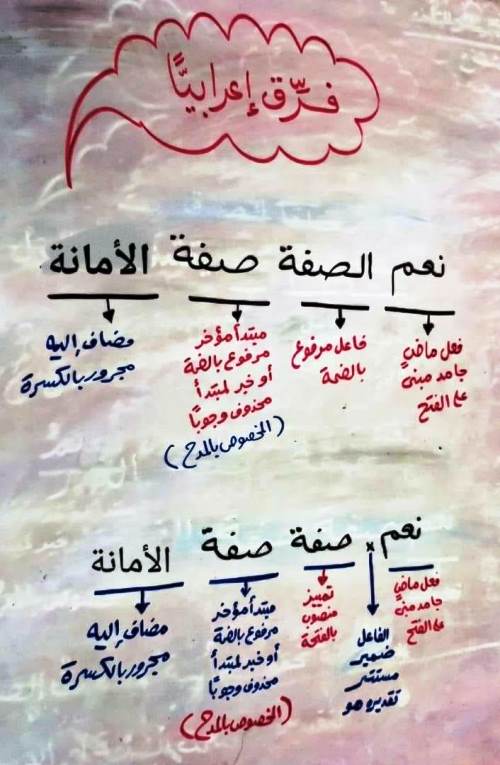 فرّق إعرابيًّا
نعم الصفة صفة الأمانة
فعل ماضٍ
جامد مبني
على الفتح
فاعل مرفوع
بالضمة
مبتدأ مؤخر
مرفوع بالضمة
أو خبر لمبتدأ
محذوف وجوبًا
(المخصوص بالمدح)
مضاف إليه
مجرور بالكسرة
نعم × صفة صفة الأمانة
فعل ماضٍ
جامد مبني
على الفتح
الفاعل
ضمير
مستتر
تقديره هو
تمييز
منصوب
بالفتحة
مبتدأ مؤخر
مرفوع بالضمة
أو خبر لمبتدأ
محذوف وجوبًا
(المخصوص بالمدح)
مضاف إليه
مجرور بالكسرة